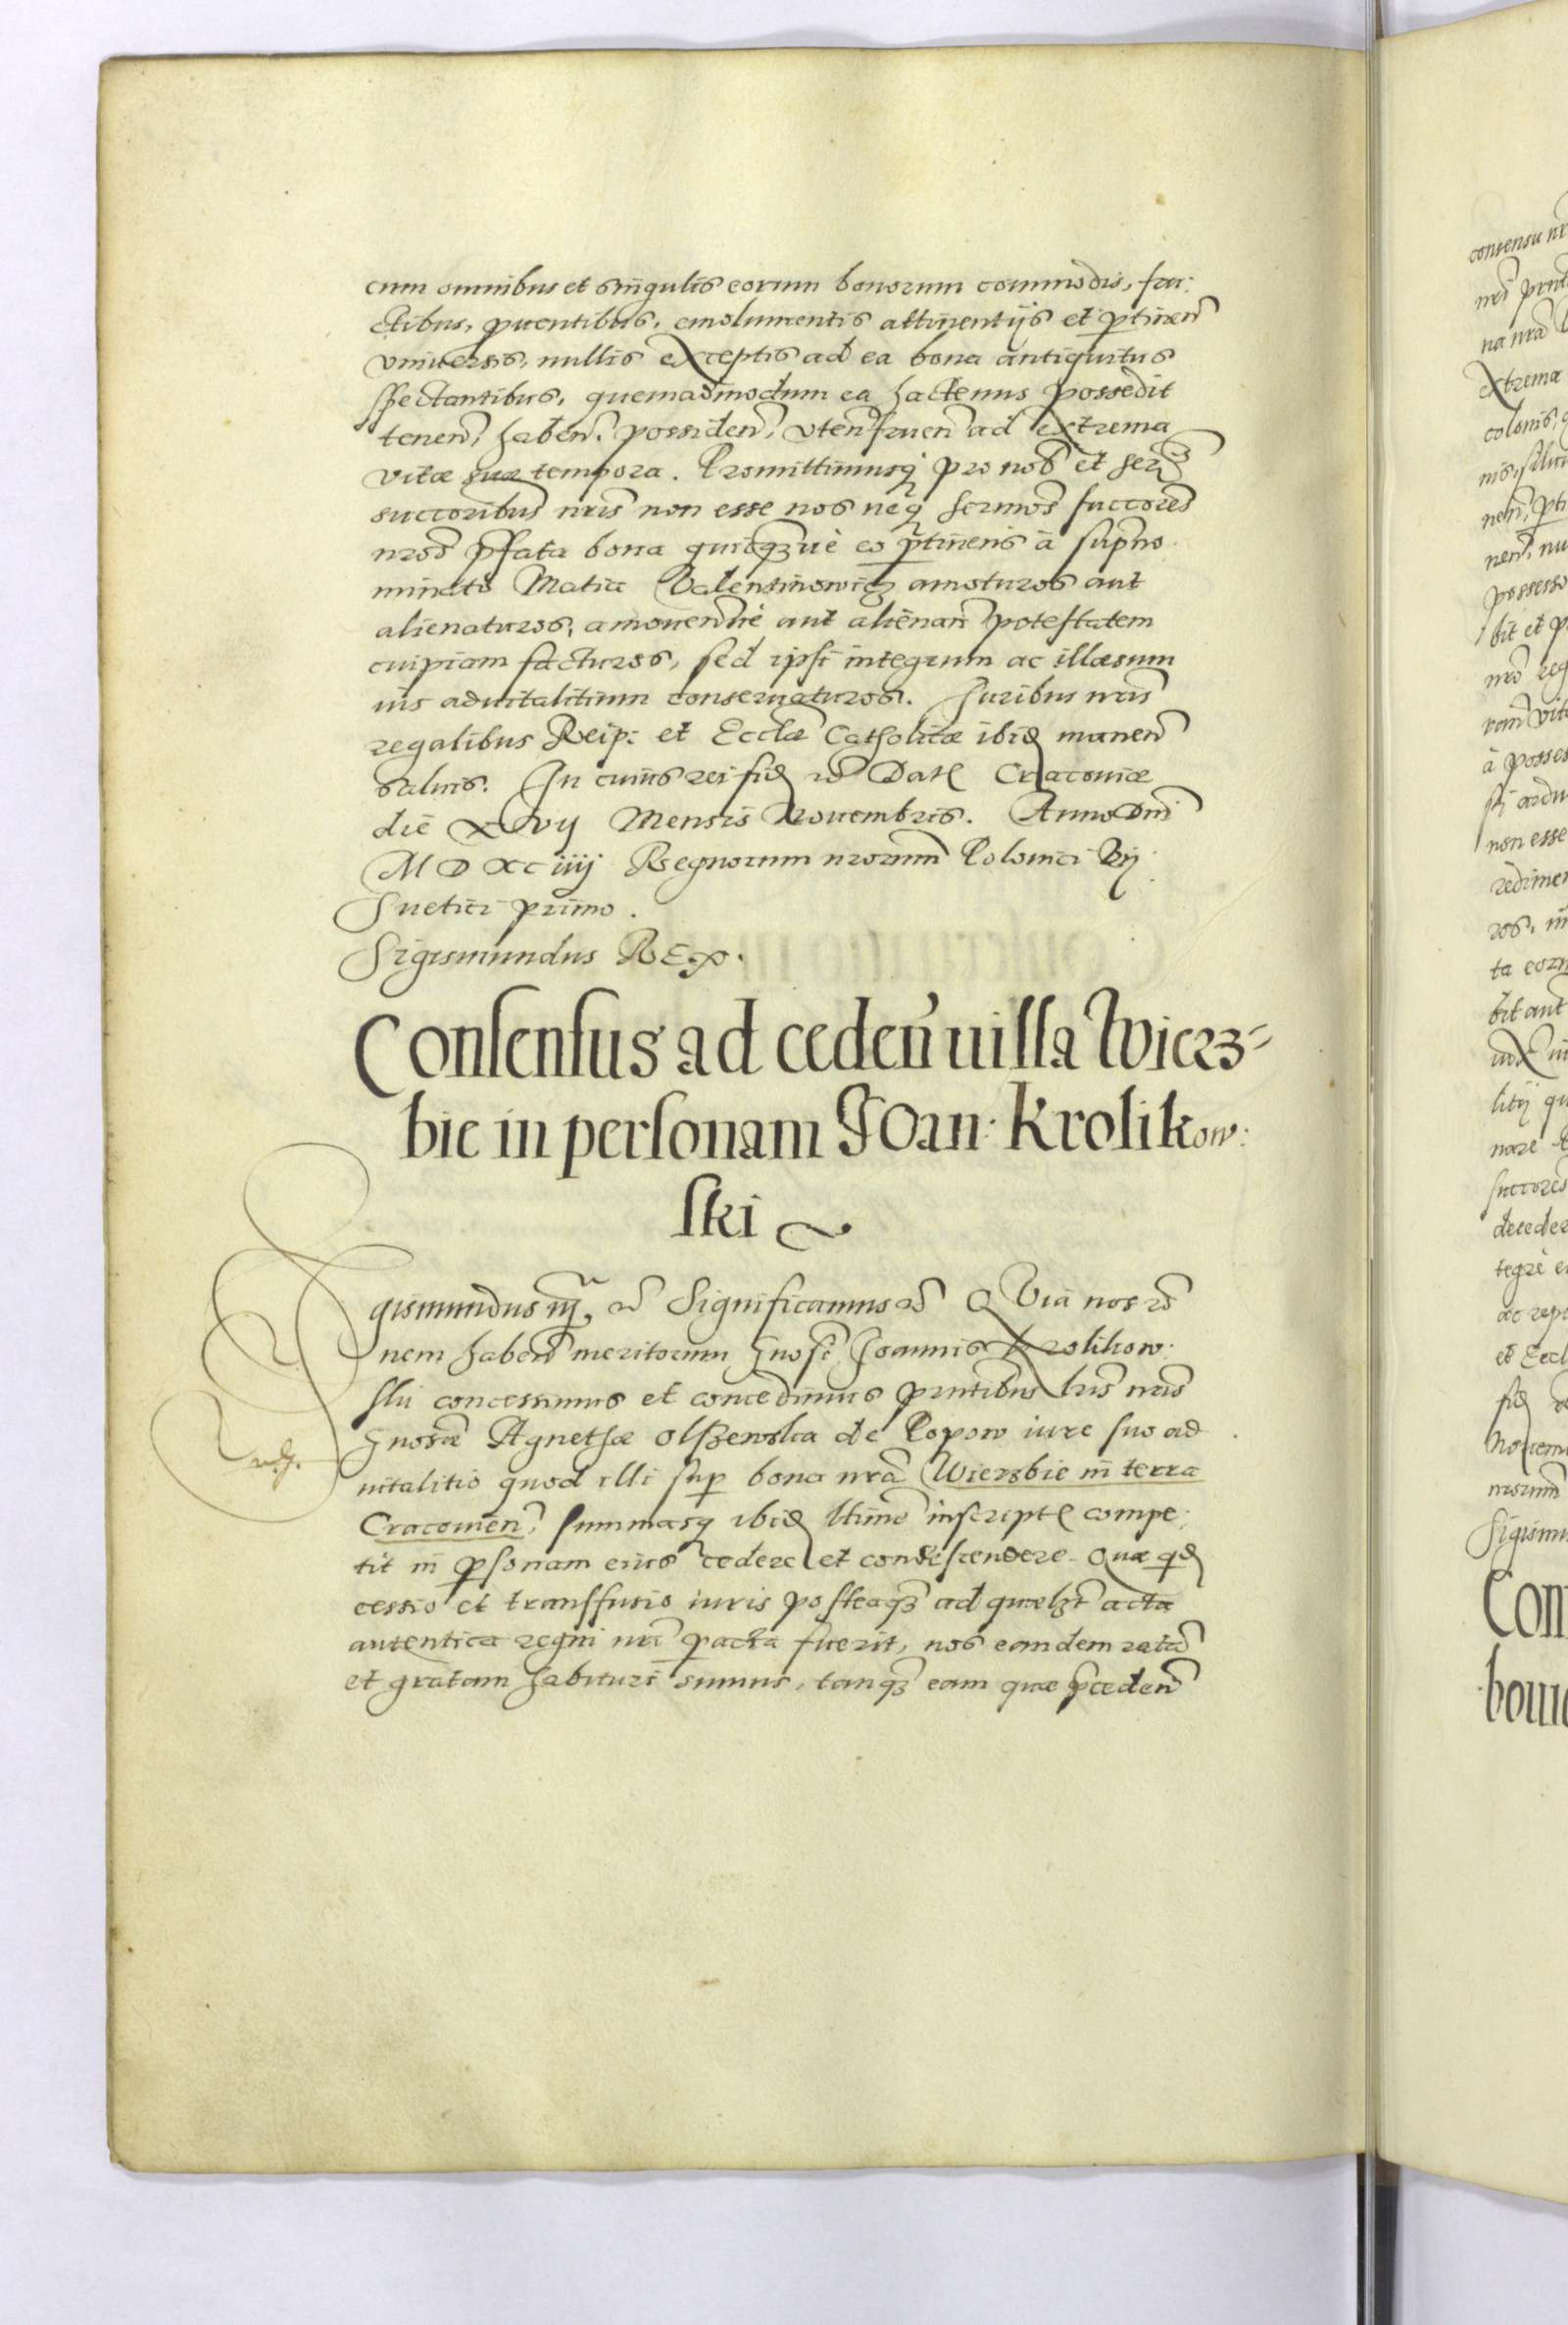 cum omnibus et singulis eorum bonorum commodis, fru:
ctibus, puentibus, emolumentis attinentijs et ptinen
vniuersis, nullis exceptis ad ea bona antiquitus
spectantibus, quemadmodum ea hactenus possedit
tenen, haben, possiden, vten fruen ad extrema
vitæ suæ tempora. Promittimusq pro nob et ser
succoribus nris non esse nos neq sermos succores
nros pfata bona quicqueue eo ptinens à supno
minato Matia Valentinowicz amoturos aut
alienaturos, amouendiue aut alienan potestatem
cuipiam facturos, sed ipsi integrum ac illæsum
ius aduitalitium conseruaturos. Juribus nris
regalibus Reip: et Ecclæ Catholicæ ibid manen
saluis. In cuius rei fid etc Dat Cracouiæ
die XVij Mensis Nouembris. Anno Dni
M D XC iiij Regnorum nrorum Polonici Vij
Suetici primo.
Sigismundus REX.
Consensus ad ceden uilla Wierz-
bie in personam JOan: Krolikow:
ski
Sigismundus iij, etc Significamus etc QVia nos ro
nem haben meritorum Gnosi Joannis Krolikow:
ski concessimus et concedimus pntibus lris nris
Gnosæ Agnethæ Olszewska de Popow iure suo ad
uitalitio quod illi sup bona nra Wierzbie in terra
Cracouien, summasq ibid ltime inscript compe:
tit in psonam eius cedere et condescendere. Quæ qd
cessio et transfusio iuris posteaq ad quælzt acta
autentica regni nri pacta fuerit, nos eandem ratam
et gratam habituri sumus, tanq eam quæ pceden